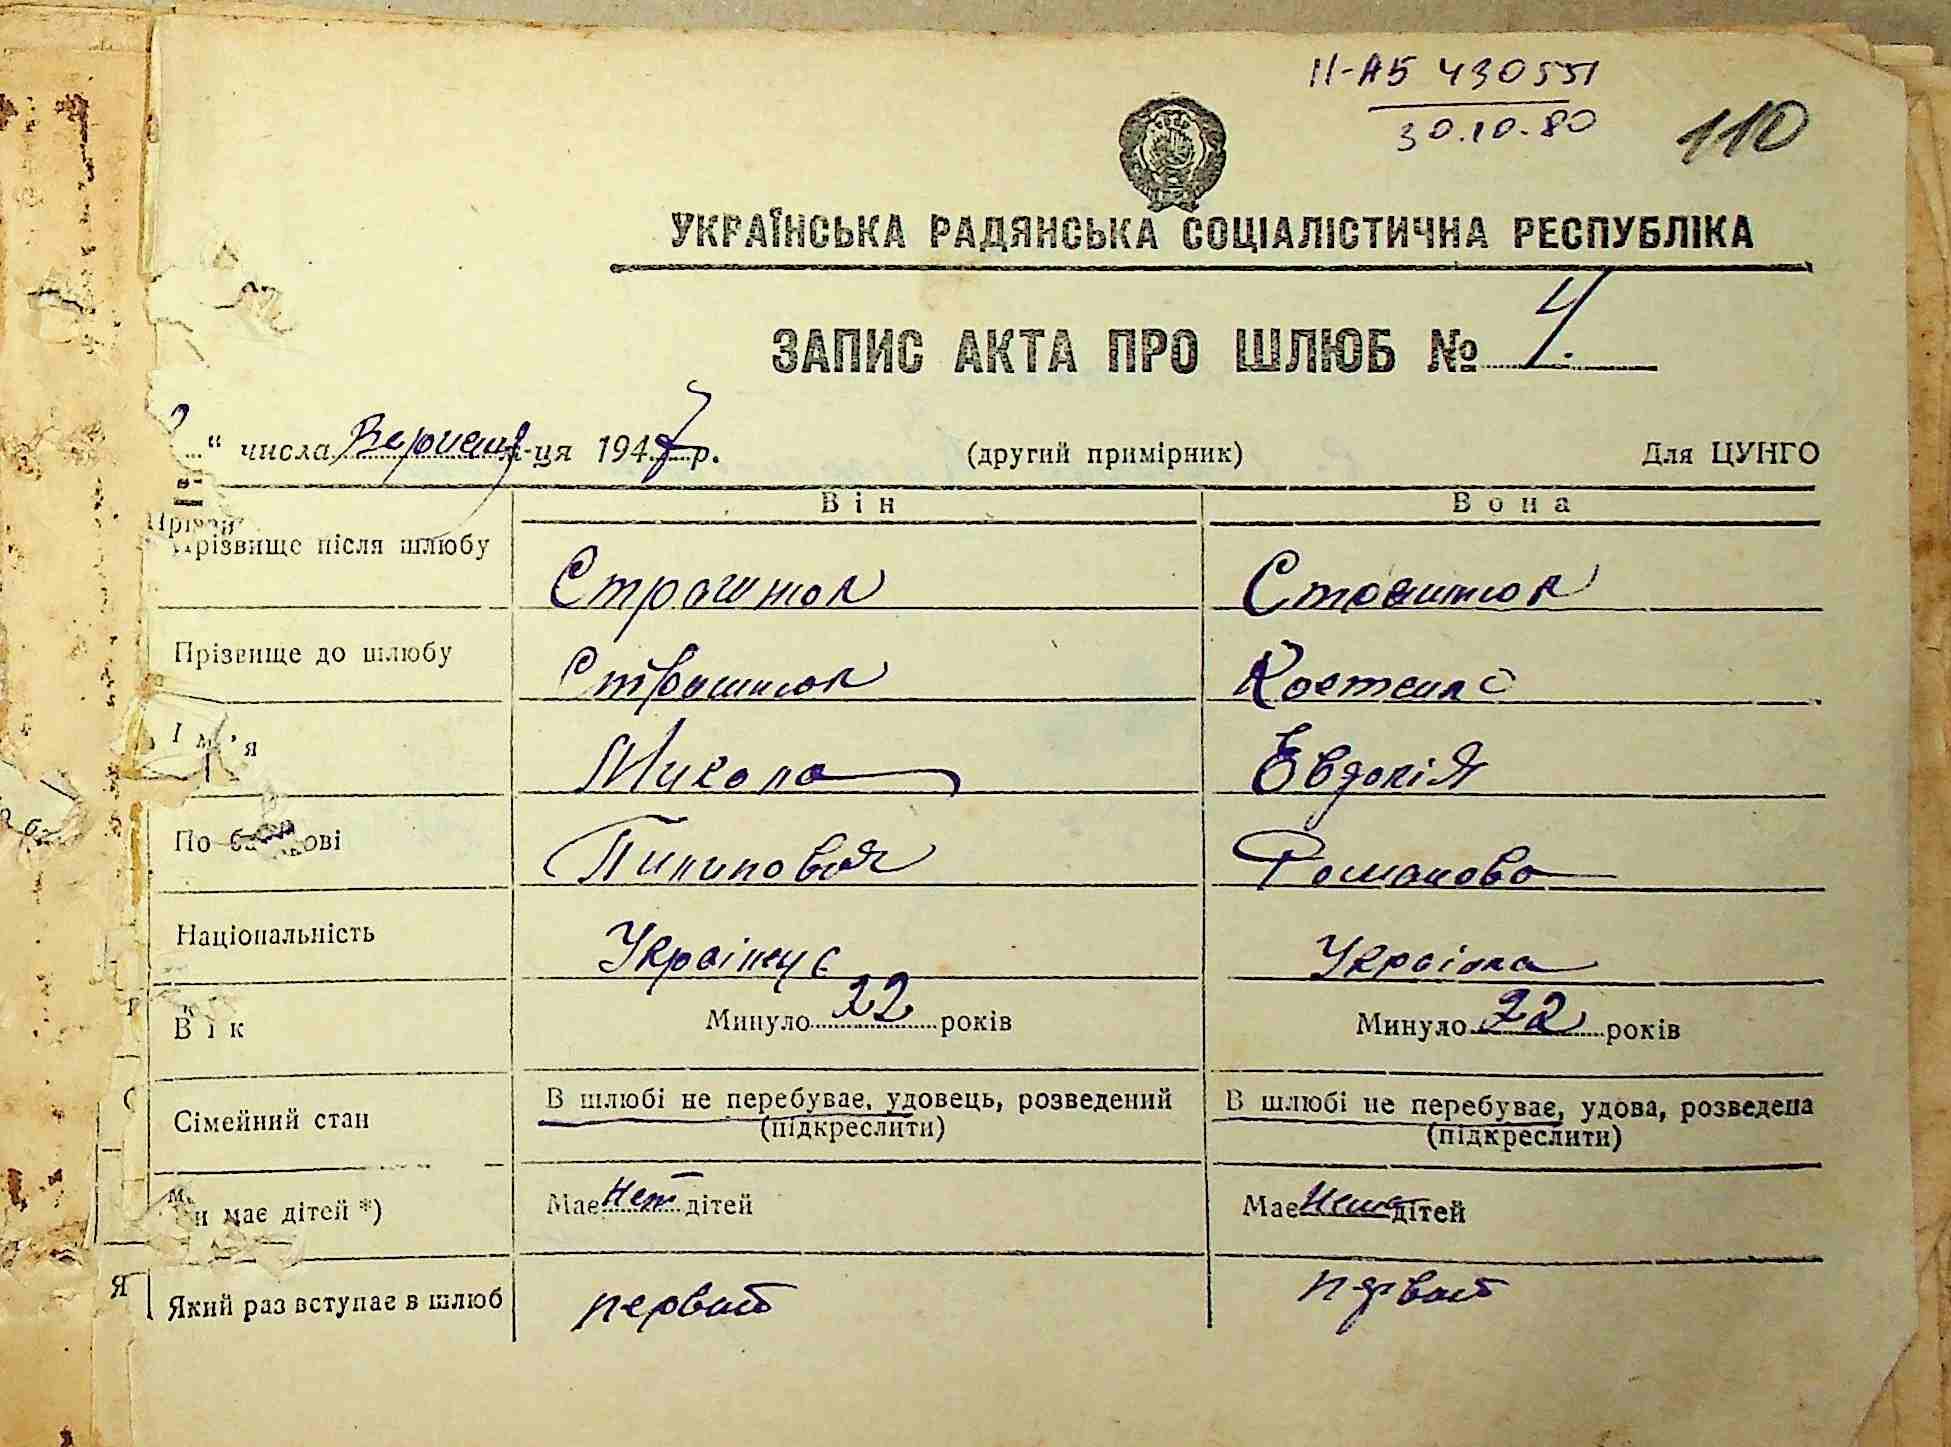 II-АБ 430551
30.10.80
110
УКРАЇНСЬКА РАДЯНСЬКА СОЦІАЛІСТИЧНА РЕСПУБЛІКА
ЗАПИС АКТА ПРО ШЛЮБ № 4.
“ числа Вересня м-ця 1947 р. (другий примірник) Для ЦУНГО
Він Вона
Прізвище після шлюбу Страштюк Страштюк
Прізвище до шлюбу Страштюк Костенко
Ім'я Микола Евдокія
По батькові Пилипович Романовна
Національність Українец Українка
Вік Минуло 22 років Минуло 22 років
Сімейний стан В шлюбі не перебуває, удовець, розведений В шлюбі не перебуває, удова, розведена
(підкреслити) (підкреслити)
має дітей *) Має нет дітей Має Нема дітей
Який раз вступає в шлюб первий первий